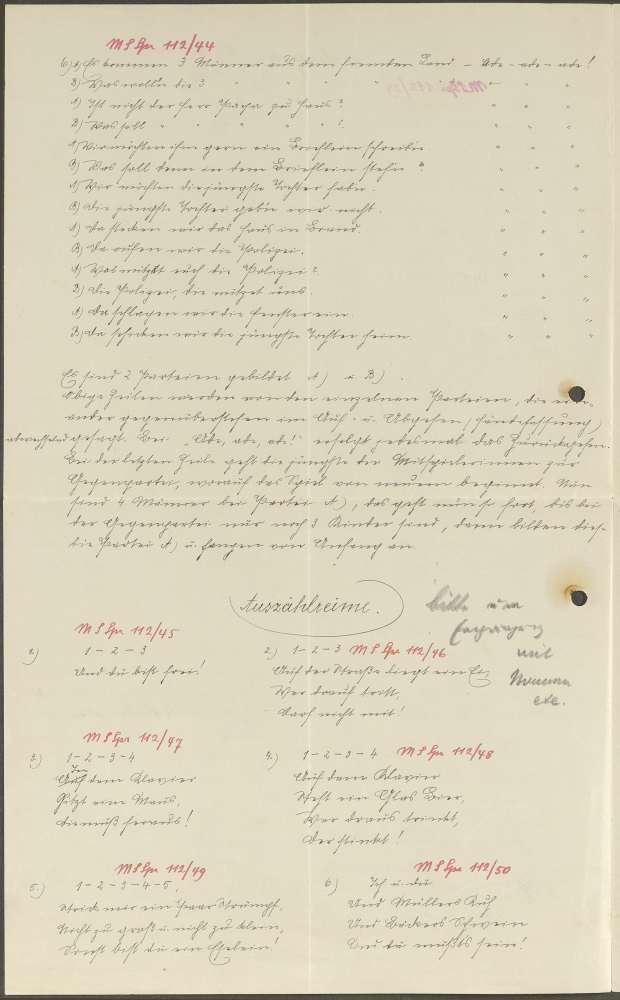 MS Spr 112/44
6) A) Es kommen 3 Männer aus dem fremden Land. – Ade – ade – ade!
B) Was woll'n die 3 " " " " " " "
A) Ist nicht der Herr Papa zu Haus? " " "
B) Was soll " " " " ? " " "
A) Wir möchten ihm gern ein Brieflein schreiben " " "
B) Was soll denn in dem Brieflein stehn? " " "
A) Wir möchten die jüngste Tochter habn. " " "
B) Die jüngste Tochter geb'n wir nicht. " " "
A) Da stecken wir das Haus in Brand. " " "
B) Da rufen wir die Polizei. " " "
A) Was nützet euch die Polizei? " " "
B) Die Polizei, die nützet uns. " " "
A) Da schlagen wir die Fenster ein. " " "
B) Da schicken wir die jüngste Tochter heim. " " "
Es sind 2 Parteien gebildet A) u. B).
Obige Zeilen werden von den einzelnen Parteien, die ein-
ander gegenüberstehen im Auf- u. Abgehen, (Händefassung)
abwechselnd gesagt. Bei „Ade, ade, ade!" erfolgt jedesmal das Zurückgehen.
Bei der letzten Zeile geht die jüngste der Mitspielerinnen zur
Gegenpartei, worauf das Spiel von neuem beginnt. Nun
sind 4 Männer bei Partei A), das geht nun so fort, bis bei
der Gegenpartei nur noch 3 Kinder sind, dann bilden diese
die Partei A) u. fangen von Anfang an.
Auszählreime.
bitte um
mit
Nummern
etc.
MS Spr 112/45
1.) 1 – 2 – 3
Und du bist frei!
2.) 1 – 2 – 3 MS Spr 112/46
Auf der Straße liegt ein Ei,
Wer drauf tritt,
Darf nicht mit!
MS Spr 112/47
3.) 1 – 2 – 3 – 4
In
Auf dem Klavier
Sitzt eine Maus,
Die muß heraus!
4.) 1 – 2 – 3 – 4 MS Spr 112/48
Auf dem Klavier
Steht ein Glas Bier,
Wer draus trinkt,
Der stinkt!
MS Spr 112/49
5.) 1 – 2 – 3 – 4 – 5,
Strick mir ein Paar Strümpf,
Nicht zu groß u. nicht zu klein,
Sonst bist du ein Eselein!
MS Spr 112/50
6.) Ich u. du
Und Müllers Kuh
Und Bäckers Schwein
Und du mußts sein!